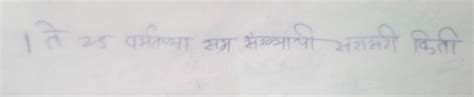 1 ते 25 पर्यंतच्या सम संख्यांची सरासरी किती